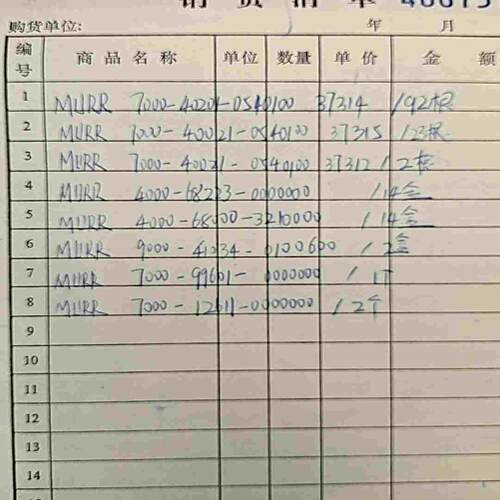 销货清单
购货单位: 年 月
编号 商品名称 单位 数量 单价 金额
1 MURR 7000-40201-0540100 37314 /92根
2 MURR 7000-40021-0540100 37315 /23根
3 MURR 7000-40021-0540100 37312 /2根
4 MURR 4000-68223-0000000 /14盒
5 MURR 4000-68000-3210000 /14盒
6 MURR 9000-41034-0100600 /2盒
7 MURR 7000-99601-0000000 /1个
8 MURR 7000-12611-0000000 /2个
9
10
11
12
13
14